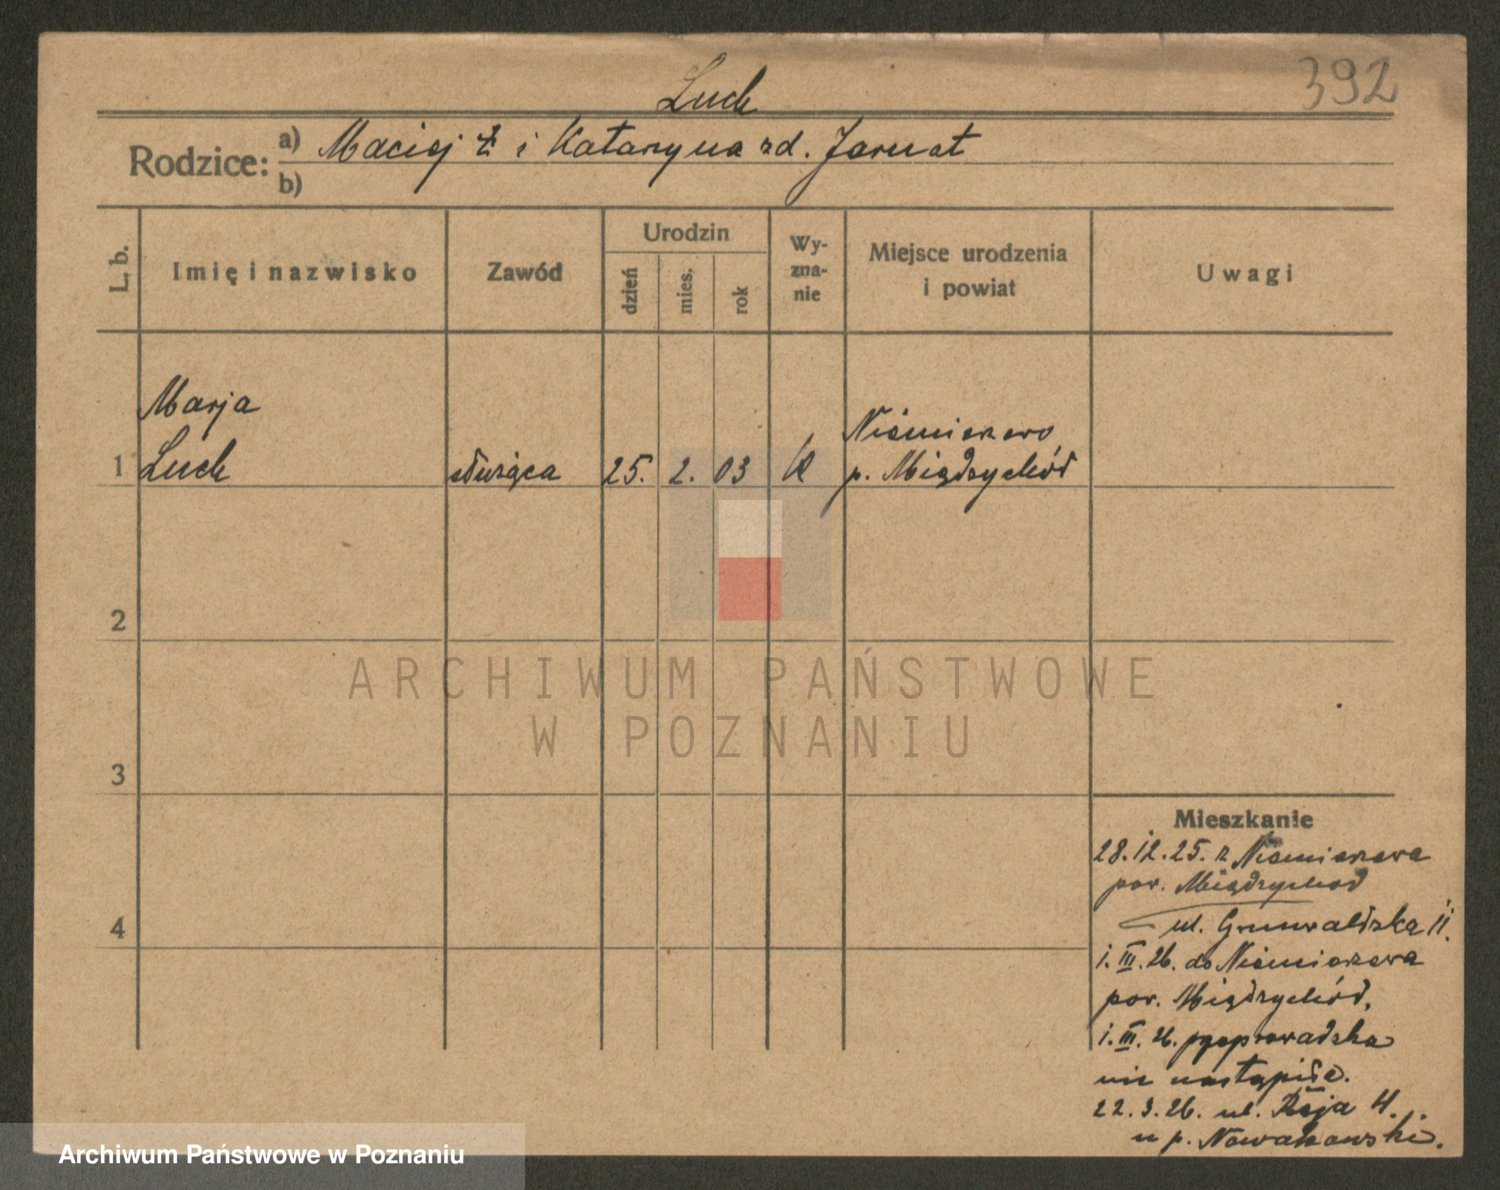 392
Luch
Rodzice: a) Maciej ł i Katarzyna zd. Jarnat
b)
L. b. Imię i nazwisko Zawód Urodzin dzień mies. rok Wy-zna-nie Miejsce urodzenia i powiat Uwagi
Marja Niemierzewo
1 Luch służąca 25. 2. 03 k p. Międzychód
2
ARCHIWUM PAŃSTWOWE
W POZNANIU
3
Mieszkanie
28.12.25. z Niemierzewa
pow. Międzychod
ul. Grunwaldzka 11.
1.III.26. do Niemierzewa
pow. Międzychód.
4
1.III.26. przeprowadzka
nie nastąpiła.
22.3.26. ul. Reja 4.
u p. Nowakowski.
Archiwum Państwowe w Poznaniu